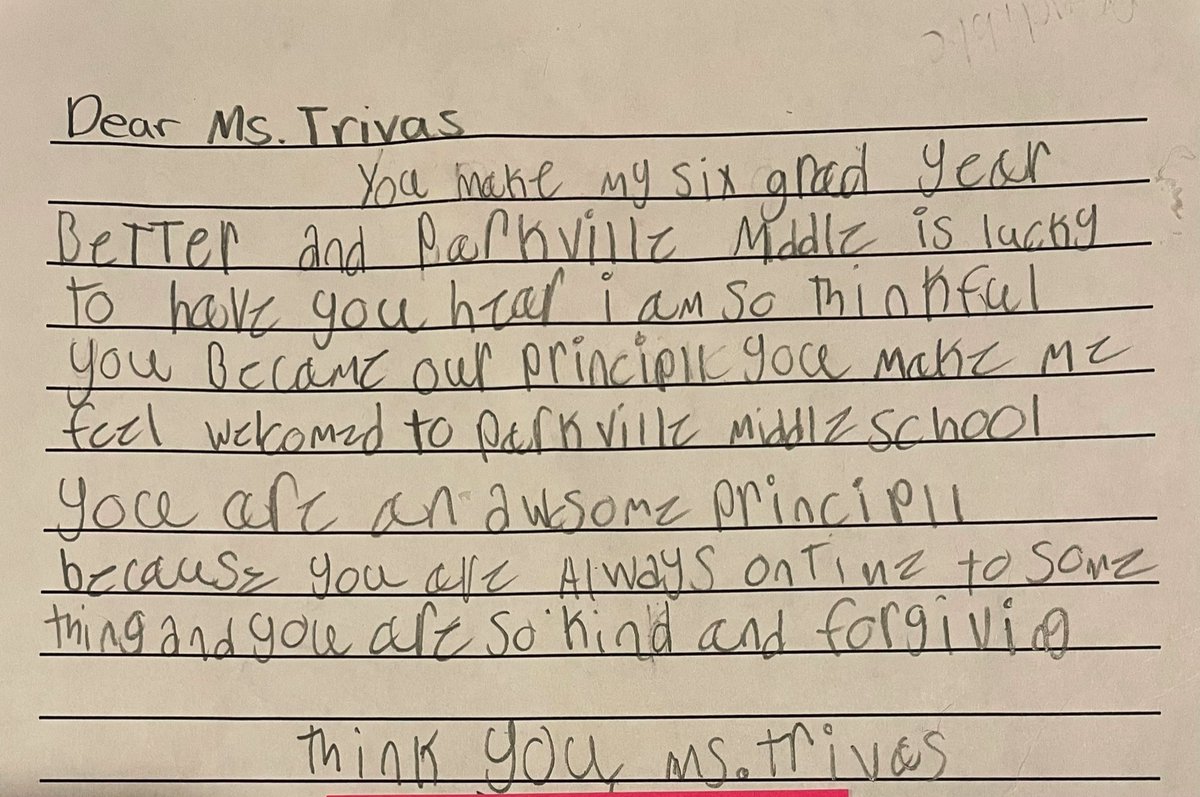 Dear Ms. Trivas
You make my six grad year
Better and Parkville Middle is lucky
to have you hear i am so thinkful
you Became our principle you make me
feel welcomed to parkville middle school
you are an awsome principll
because you are Always on Time to some
thing and you are so kind and forgiving
think you, ms. trivas